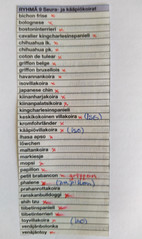 RYHMÄ 9 Seura- ja kääpiökoirat
bichon frisé
bolognese
bostoninterrieri
cavalier kingcharlesinspanieli
chihuahua lk.
chihuahua pk.
coton de tuléar
griffon belge
griffon bruxellois
havannankoira
isovillakoira
japanese chin
kiinanharjakoira
kiinanpalatsikoira
kingcharlesinspanieli
keskikokoinen villakoira (iso)
kromfohrländer
kääpiövillakoira (iso)
lhasa apso
löwchen
maltankoira
markiesje
mopsi
papillon
petit brabancon griffon
phalène
prahanrottakoira
ranskanbulldoggi
shih tzu
tiibetinspanieli
tiibetinterrieri
toyvillakoira (iso)
venäjänbolonka
venäjäntoy